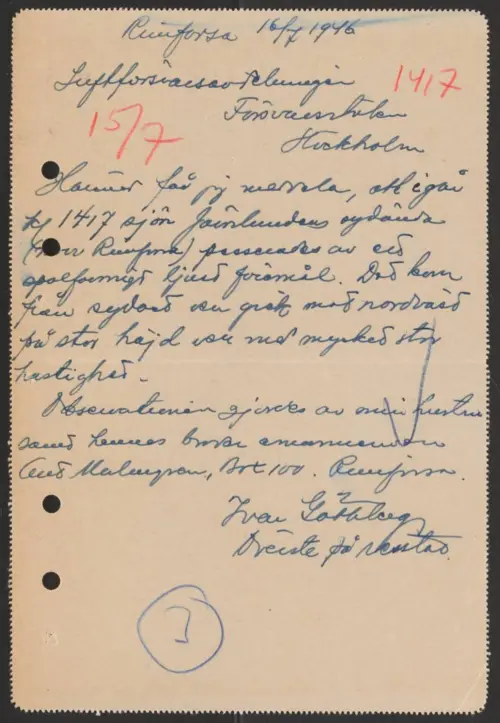 Rimforsa 16/7 1946
Luftförsvarsavdelningen 1417
15/7
Försvarsstaben
Stockholm
Härmed får jag meddela, att igår
kl 1417 sjön Järnlundens sydända
(norr Rimforsa) passerades av ett
ovalformigt ljust föremål. Det kom
från sydost och gick mot nordväst
på stor höjd och med mycket stor
hastighet.
Observationen gjordes av min hustru
samt hennes broder
Malmgren, Box 100. Rimforsa.
Ivar Göthberg
på
3